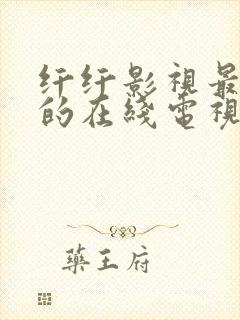 纤纤影視最
的在綫電視
藥王府